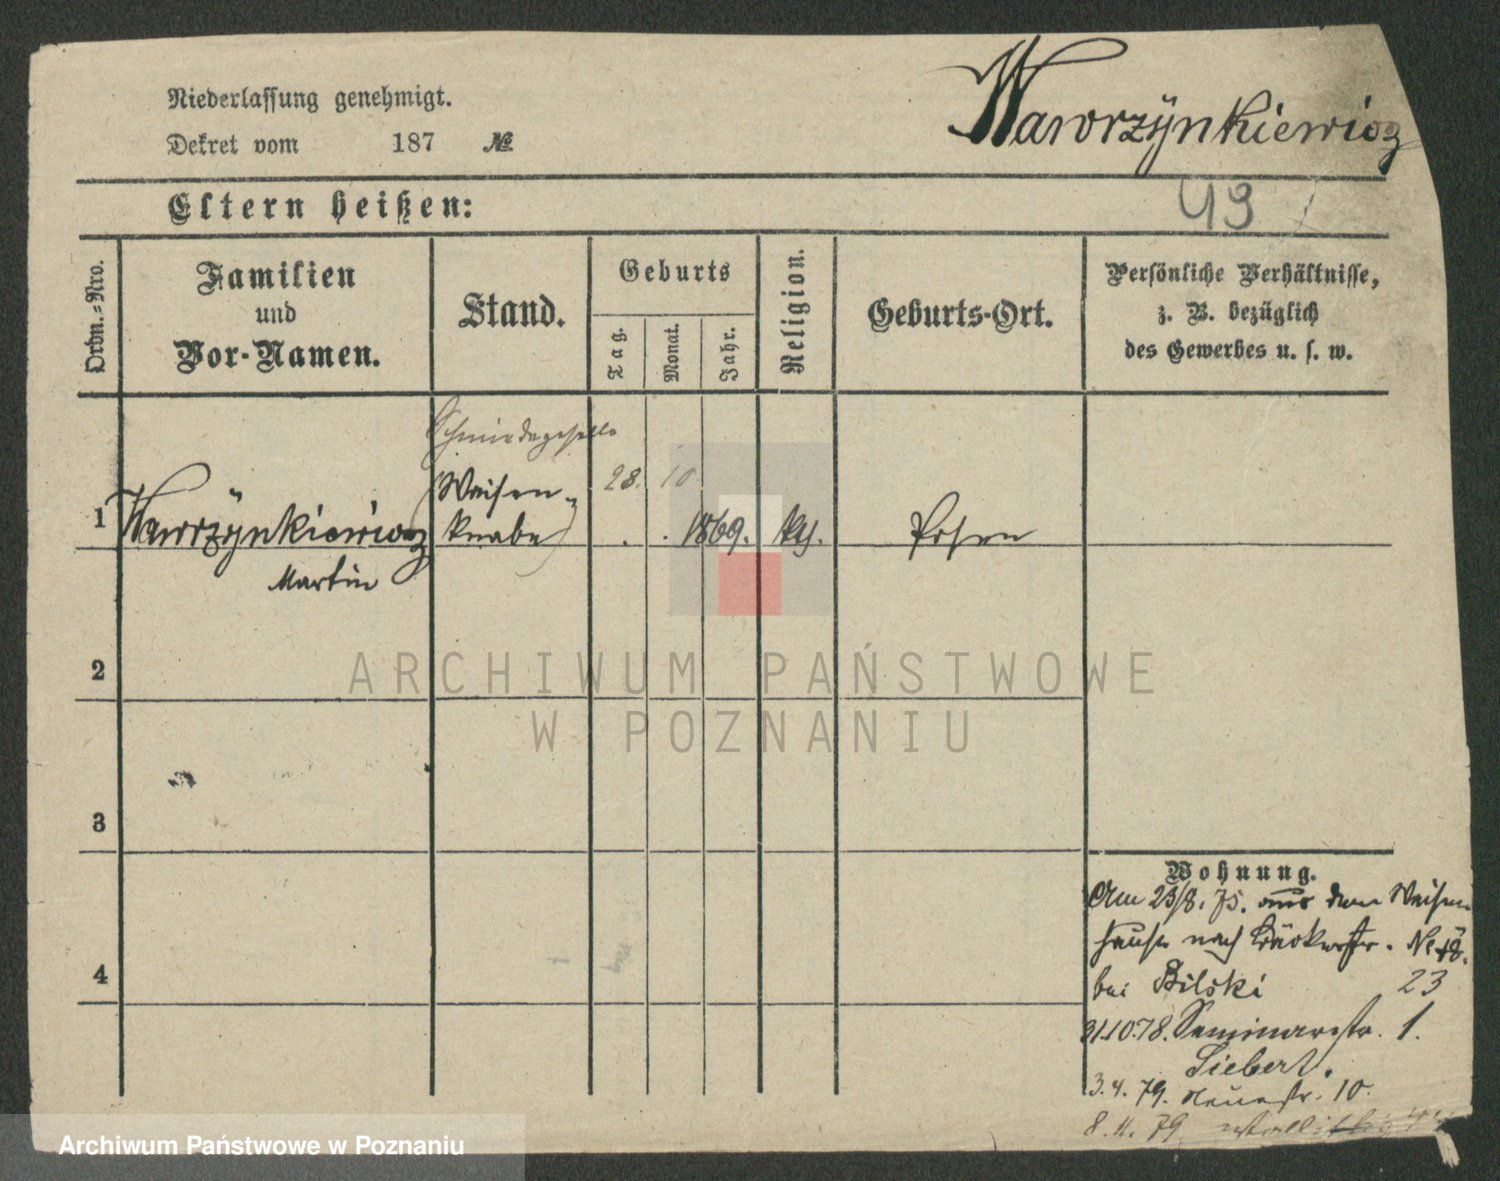 Niederlassung genehmigt.
Dekret vom 187 №
Wawrzÿnkiewicz
Eltern heißen:
49
Ordn.-Nro.
Familien
und
Vor-Namen.
Stand.
Geburts
Tag.
Monat.
Jahr.
Religion.
Geburts-Ort.
Persönliche Verhältnisse,
z. B. bezüglich
des Gewerbes u. s. w.
Schmiedegeselle
1 Wawrzÿnkiewicz (Waisen- 28. 10
knabe) 1869. kth. Posen
Martin
2
3
4
ARCHIWUM PAŃSTWOWE
W POZNANIU
Wohnung.
Am 23/8. 75. aus dem Waisen
hause nach Bäckerstr. No
bei Bilski 23
31.10.78. Seminarstr. 1.
Siebert.
3.4.79. Neuestr. 10.
8.11.79.
Archiwum Państwowe w Poznaniu